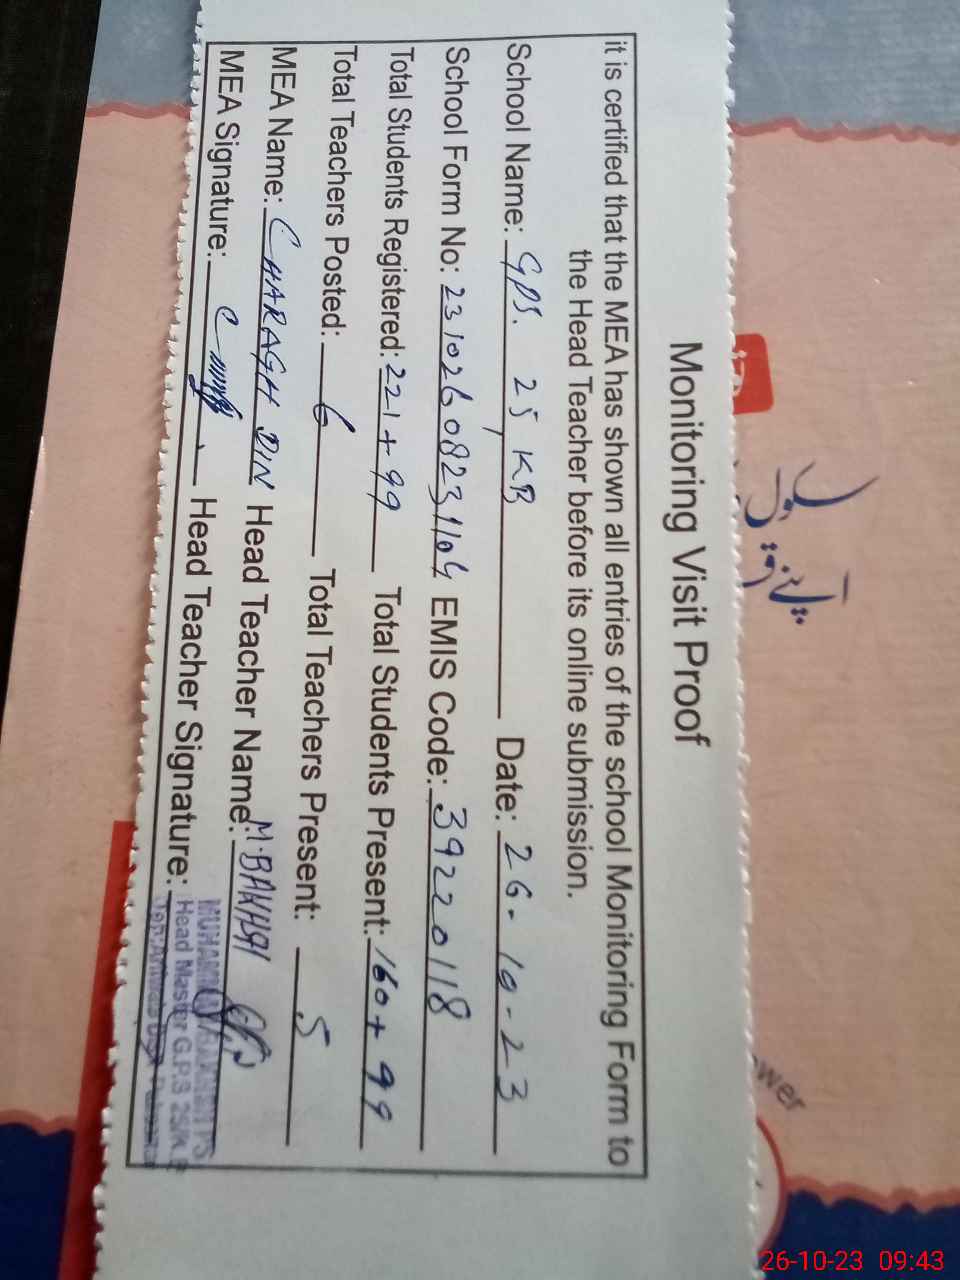 Monitoring Visit Proof
it is certified that the MEA has shown all entries of the school Monitoring Form to
the Head Teacher before its online submission.
School Name: GPS. 25 KB Date: 26-10-23
School Form No: 2310260823 EMIS Code: 39220118
Total Students Registered: 221+99 Total Students Present: 160+99
Total Teachers Posted: 6 Total Teachers Present: 5
MEA Name: CHARAGH DIN Head Teacher Name: M.BAKHSH
MEA Signature: Head Teacher Signature:
Head Master G.P.S 25/K.B
سکول
اپنے
wer
26-10-23 09:43